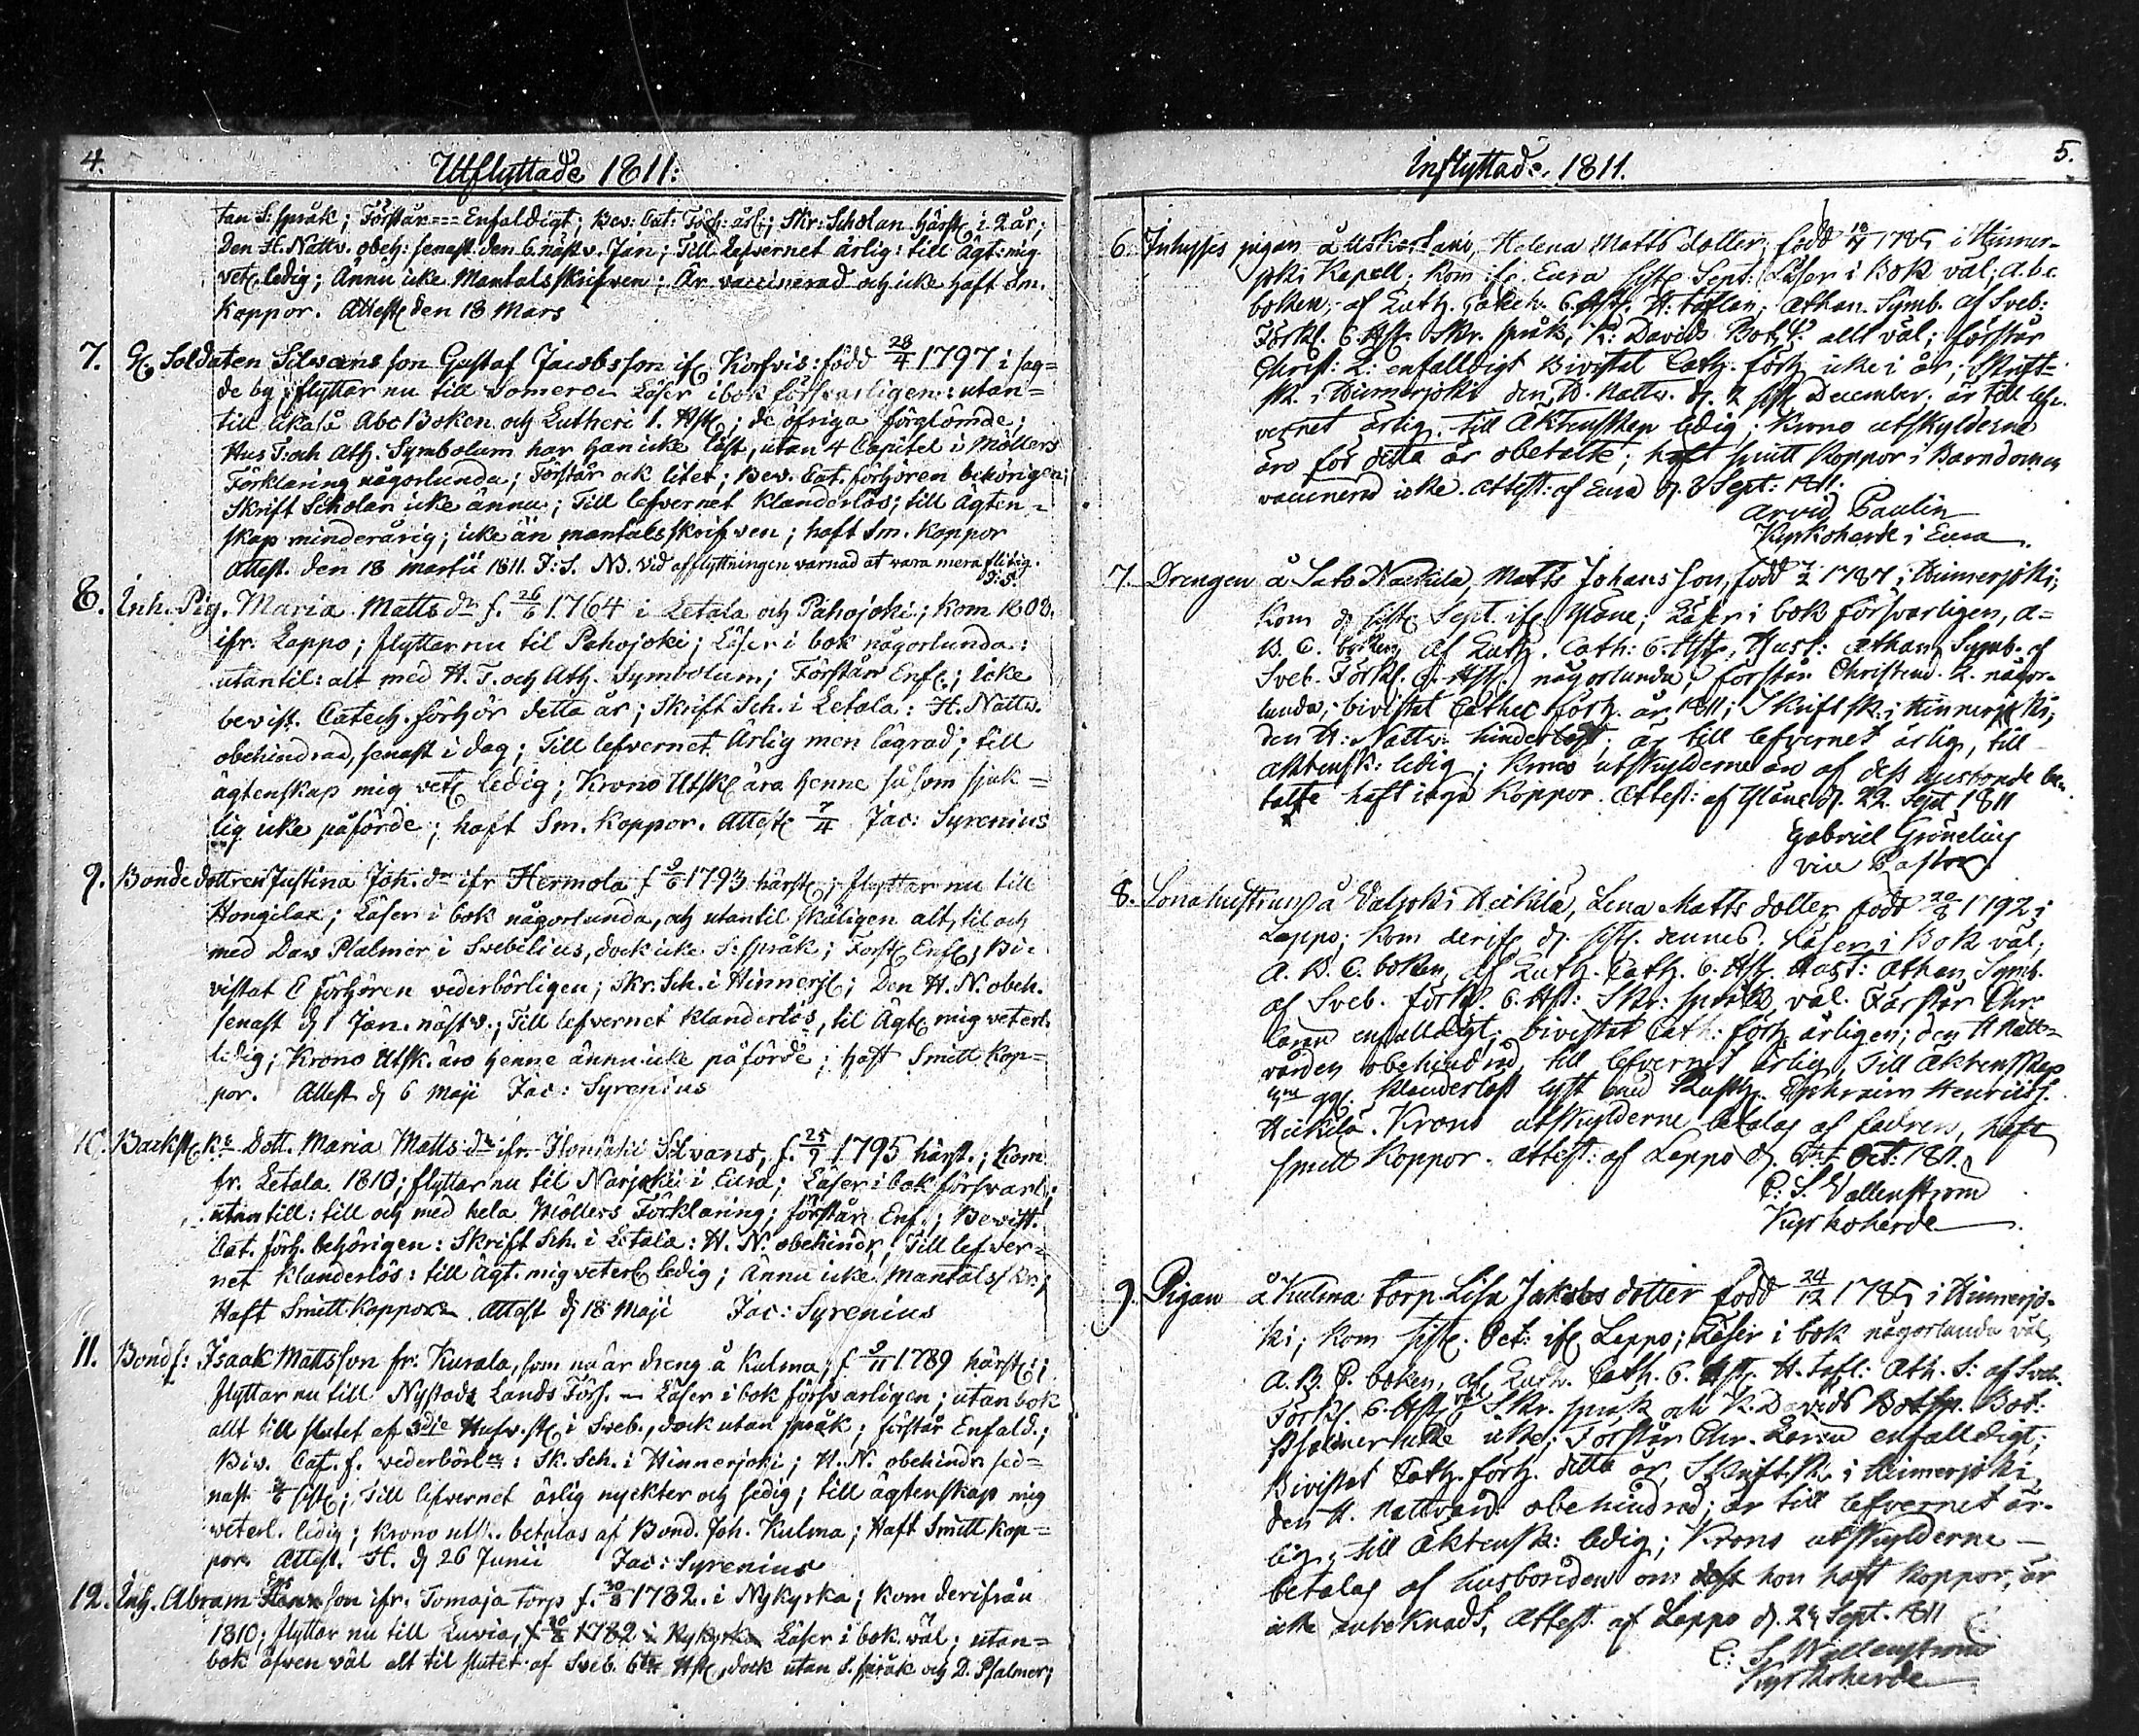 4.
Utflyttade 1811:
tan S: språk; Förstår === Enfaldigt; Bev: Cat: Förh: årl:; Skr: Scholan härst: i 2 år;
Den H. Nattv. obeh: senast den 6. näst v. Jan; Till Lefvernet ärlig: till Ägt: mig
vet. ledig; Ännu icke Mantalsskrifven; Är vaccinerad och icke haft Sm.
Koppor. Attest den 18 Mars
7. Gl. Soldaten Silvans son Gustaf Jacobsson ifr. Korfvis: född 28/4 1797 i sag=
de by; flyttar nu till Somero. Läser i bok försvarligen: utan=
till likaså Abc Boken och Lutheri 1. Hst; de öfriga förglömde;
Hus T: och Ath. Symbolum har han icke läst, utan 4 Capitel i Möllers
Förklaring någorlunda; Förstår ock litet; Bev. Cat. förhören behörigen;
Skrift Scholan icke ännu; Till lefvernet klanderlös; till Ägten=
skap minderårig; icke än mantalsskrifven; haft Sm. Koppor
Attest. den 18 Martii 1811. J: S. NB. Vid afflyttningen varnad at vara mera flitig.
J: S.
8. Inh. Pig. Maria Mattsdr f. 26/6 1764 i Letala och Pahojoki; Kom 1803.
ifr. Lappo; flyttar nu til Pahojoki; Läser i bok någorlunda:
utantil: alt med H. T. och Ath. Symbolum; Förstår Enf.; icke
bevist. Catech. förhör detta år; Skrift Sch. i Letala: H. Nattv.
obehindrad, senast i dag; Till lefvernet Ärlig men lägrad; till
ägtenskap mig vet. ledig; Krono Utsk. ära henne så som sjuk=
lig icke påförde; haft Sm. Koppor. Attest 7/4 Jac: Syrenius
9. Bonde dottren Justina Joh. dr ifr Hermola f 9/6 1793 härst.; flyttar nu till
Hongilax; Läser i bok någorlunda, och utantil skäligen alt, til och
med Dav Psalmer i Svebilius, dock icke S: språk; Först. Enf.; Bi=
vistat C förhören vederbörligen; Skr. Sch. i Hinnerj.; Den H. N. obeh.
senast d 1 Jan. nästv.; Till lefvernet klanderlös, til Ägt. mig veterl.
ledig; Krono Utsk. äro henne ännu icke påförde; haft Smitt kop=
por. Attest d 6 Maji Jac: Syrenius
10. Backst. Ks Dott. Maria Matts dr ifr. Silvans, f. 25/7 1795 härst.; kom
fr. Letala 1810; flyttar nu til Narjoki i Eura; Läser i bok försvarl;
utantill: till och med hela Möllers Förklaring; förstår Enf.; Bevist.
Cat. förh. behörigen: Skrift Sch. i Letala: H. N. obehindr; Till lefver=
net klanderlös: till Ägt. mig veterl. ledig; Ännu icke Mantalsskr;
Haft Smitt Koppor. Attest d 18 Maji Jac: Syrenius
11. Bond s: Isaak Mattsson fr: Kurala, som nu är dreng å Kulma; f 9/11 1789 härst.;
flyttar nu till Nystads Lands Förs. — Läser i bok försvarligen; utan bok
allt till slutet af 3die Hufv. st. i Sveb., dock utan språk; förstår Enfald.;
Biv. Cat. f. vederbörl.: Sk. Sch. i Hinnerjoki; H. N. obehindr. sed=
nast sist; Till lefvernet ärlig nyckter och sedig; till ägtenskap mig
veterl. ledig; krono utsk. betalas af Bond. Joh. Kulma; Haft Smitt kop=
por. Attest. H. d 26 Junii Jac: Syrenius
12. Inh. Abram son ifr. Tomaja torp f. 30/8 1782. i Nykyrka; kom derifrån
1810; flyttar nu till Luvia, f 30/8 1782 i Nykyrka Läser i bok väl; utan=
bok äfven väl alt til slutet af Sveb. 6te Hst., dock utan S. språk och D. Psalmer;
5.
Inflyttade, 1811.
6. Inhyses pigan å Uskortani, Helena Matts dotter, född 1785 i Hinner-
joki Kapell. kom ifr. Eura sistl. Sept: Läser i Bok väl; a.b.c.
boken; af Luth. Catech. 6. Hst. H: taflan, Athan. Symb. af Sveb:
Förkl. 6. Hst. Skr. språk, K: Davids Bot P. allt väl; förstår
Christ: L: enfalldigt Bivistat Cath. förh icke i år; Skrift-
sk. i Hinnerjoki den H. Nattv. d. 2 sistl December. är till lef-
vernet ärlig. till Äktenskap ledig; Krono utskylderne
äro för detta år obetalte; haft smitt Koppor i Barndomen
vaccinerad icke. attest: af Eura d. 3 Sept: 1811.
Arvid Paulin
Kyrkoherde i Eura.
7. Drengen å Sato Nackila, Matts Johansson, född 1787 i Hinnerjoki;
kom d sistl. Sept. ifr Yläne; Läser i bok försvarligen, a=
B. C. boken, af Luth. Cath: 6. Hst., Hust: Athan, Symb. af
Sveb. Förkl. 6. Hst. någorlunda; förstår Christend. L. någor-
lunda; bivistat Cathec förh. år 1811; Skriftsk: i Hinnerjoki;
den H: Nattv: hinderlöst; är till lefvernet ärlig, till
äktensk: ledig; krono utskylderne än af dess husbonde be-
talte haft inga Koppor. Attest: af Yläne d. 22 Sept 1811
Gabriel Gröneling
vice Pastor.
8. Sonahustrun å Valjoki Heikilä, Lena Matts dotter född 20/8 1792 i
Lappo; kom derifr. d. sistl. dennes. Läser i Bok väl;
A. B. C. boken, af Luth. Cath. 6. Hst. Hust: Athan, Symb.
af Sveb. förkl. 6. Hst: Skr: språk väl. Förstår Chr.
läran enfalldigt; bivistat Cath: förh årligen; den H natt=
varden obehindrad, till lefvernet ärlig, Till Äktenskap
klanderlöst lyst med Rusth. Ephraim Henricss.
Heikilä. Krono utskylderne betalas af fadren, haft
smitt Koppor. attest: af Lappo d. Oct: 1811.
C: S. Vallenström
Kyrkoherde
9. Pigan å Kulma torp Lisa Jakobs dotter född 24/12 1785 i Hinnerjo-
ki; kom sistl. Oct: ifr Lappo; Läser i bok någorlunda väl,
A. B. C. boken, af Luth. Cath. 6. Hst. H. tafl: Ath. S: af Sveb.
Förkl. 6. Hst. väl Skr. språk och K. Davids Bot:
Psalmer icke; Förstår Chr. Läran enfalldigt;
Bivistat Cath. förh. detta år, Skriftsk. i Hinnerjoki,
den H. Nattvard: obehindrad; är till lefvernet är-
lig, till Äktensk: ledig; Krono utskylderne —
betalas af husbonden om hon haft Koppor, är
icke antecknadt, Attest. af Lappo d. 24 Sept. 1811
C: S. Wallenström
Kyrkoherde